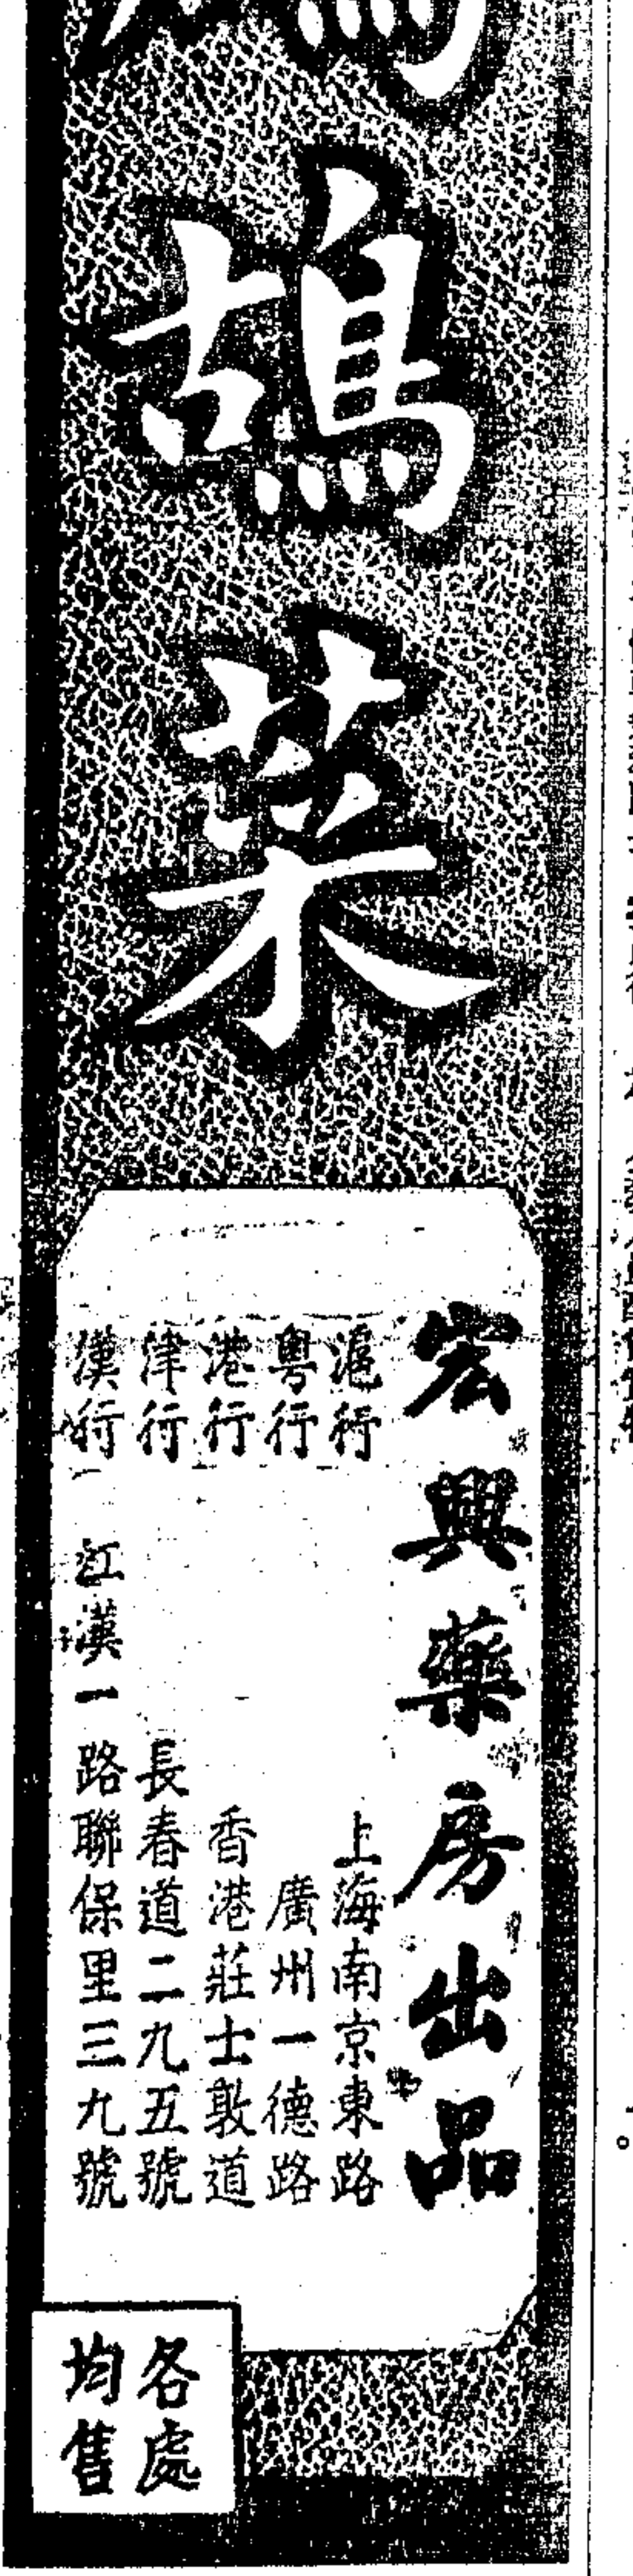 鴣
菜
宏興藥房出品
滬行 上海南京東路
粵行 廣州一德路
港行 香港莊士敦道
津行 長春道二九五號
漢行 江漢一路聯保里三九號
各處
均售